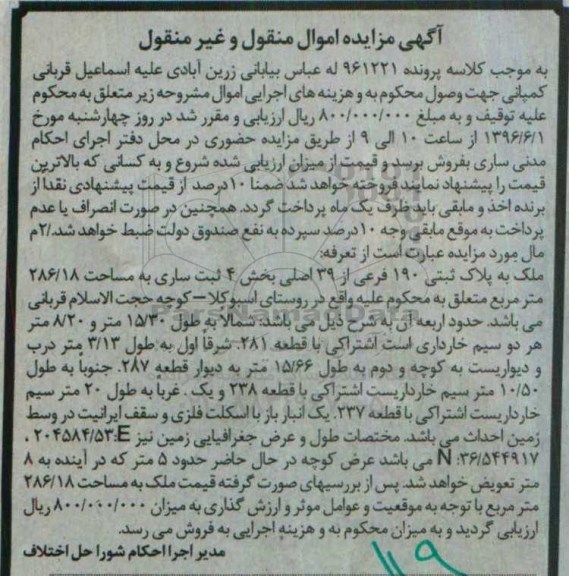 آگهی مزایده اموال منقول و غیر منقول
به موجب کلاسه پرونده ۹۶۱۲۲۱ له عباس بیابانی زرین آبادی علیه اسماعیل قربانی
کمپانی جهت وصول محکوم به و هزینه های اجرایی اموال مشروحه زیر متعلق به محکوم
علیه توقیف و به مبلغ ۸۰۰/۰۰۰/۰۰۰ ریال ارزیابی و مقرر شد در روز چهارشنبه مورخ
۱۳۹۶/۶/۱ از ساعت ۱۰ الی ۹ از طریق مزایده حضوری در محل دفتر اجرای احکام
مدنی ساری بفروش برسد و قیمت از میزان ارزیابی شده شروع و به کسانی که بالاترین
قیمت را پیشنهاد نمایند فروخته خواهد شد ضمنا ۱۰درصد از قیمت پیشنهادی نقدا از
برنده اخذ و مابقی باید ظرف یک ماه پرداخت گردد. همچنین در صورت انصراف یا عدم
پرداخت به موقع مابقی وجه ۱۰درصد سپرده به نفع صندوق دولت ضبط خواهد شد./۲م
مال مورد مزایده عبارت است از تعرفه:
ملک به پلاک ثبتی ۱۹۰ فرعی از ۳۹ اصلی بخش ۴ ثبت ساری به مساحت ۲۸۶/۱۸
متر مربع متعلق به محکوم علیه واقع در روستای اسبوکلا – کوچه حجت الاسلام قربانی
می باشد. حدود اربعه آن به شرح ذیل می باشد: شمالا به طول ۱۵/۳۰ متر و ۸/۲۰ متر
هر دو سیم خارداری است اشتراکی با قطعه ۲۸۱. شرقا اول به طول ۳/۱۳ متر درب
و دیواریست به کوچه و دوم به طول ۱۵/۶۶ متر به دیوار قطعه ۲۸۷. جنوباً به طول
۱۰/۵۰ متر سیم خارداریست اشتراکی با قطعه ۲۳۸ و یک . غربا به طول ۲۰ متر سیم
خارداریست اشتراکی با قطعه ۲۳۷. یک انبار باز با اسکلت فلزی و سقف ایرانیت در وسط
زمین احداث می باشد. مختصات طول و عرض جغرافیایی زمین نیز E:۲۰۴۵۸۴/۵۳ ،
N :۳۶/۵۴۴۹۱۷ می باشد عرض کوچه در حال حاضر حدود ۵ متر که در آینده به ۸
متر تعویض خواهد شد. پس از بررسیهای صورت گرفته قیمت ملک به مساحت ۲۸۶/۱۸
متر مربع با توجه به موقعیت و عوامل موثر و ارزش گذاری به میزان ۸۰۰/۰۰۰/۰۰۰ ریال
ارزیابی گردید و به میزان محکوم به و هزینه اجرایی به فروش می رسد.
مدیر اجرا احکام شورا حل اختلاف
ParsNamadData